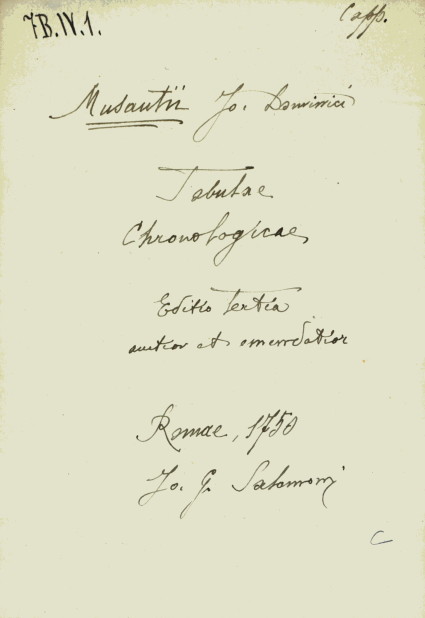 7B.IV.1.
Capp.
Musantii Jo. Dominici
Tabulae
Chronologicae
Editio tertia
auctior et emendatior
Romae, 1750
Jo. G. Salomoni
C